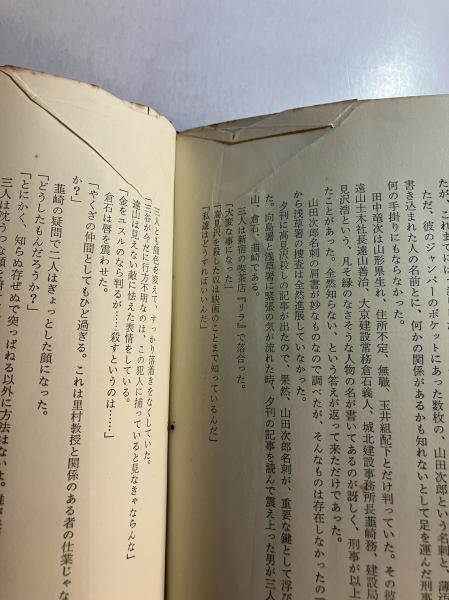 たが、これまでに
ただ、彼のジャンパーのポケットにあった数枚の、山田次郎という名刺と、薄
書き込まれた人の名前とに、何かの関係があるかも知れないとして足を運んだ刑事
何の手掛りにもならなかった。
田中竜次は山形県生れ、住所不定、無職、玉井組配下とだけ判っていた。その彼
遠山土木社長遠山善治、大京建設常務倉石義人、城北建設事務所長韮崎務、建設局
見沢浩という、凡そ縁のなさそうな人物の名が書いてあるのが訝しく、刑事が以上
たことがあった。全然知らない、という答えが返って来ただけであった。
山田次郎名刺の肩書が妙なものなので調べたが、そんなものは存在しなかったので
から浅草署の捜査は全然進展していなかった。
夕刊に高見沢殺しの記事が出たので、果然、山田次郎名刺が、重要な鍵として浮び
た。向島署と浅草署に緊張の気が流れた時、夕刊の記事を読んで震え上った男が三人
山、倉石、韮崎である。
三人は新宿の喫茶店『リラ』で落合った。
「大変な事になった」
「高見沢を殺した奴は映画のことまで知っているんだ」
「私達はどうすればいいんだ」
三人とも顔色を変えて、すっかり落着きをなくしていた。
「三谷が今だに行方不明なのは、この犯人に捕っていると見なきゃならんな」
遠山は見えない敵に怯えた表情をしている。
「金をユスルのなら判るが……殺すというのは……」
倉石は唇を震わせた。
「やくざの仲間としてもひど過ぎる。これは里村教授と関係のある者の仕業じゃな
か？」
韮崎の疑問で二人はぎょっとした顔になった。
「どうしたもんだろうか？」
「とにかく、知らぬ存ぜぬで突っぱねる以外に方法はないよ。
三人は沈うつな顔を